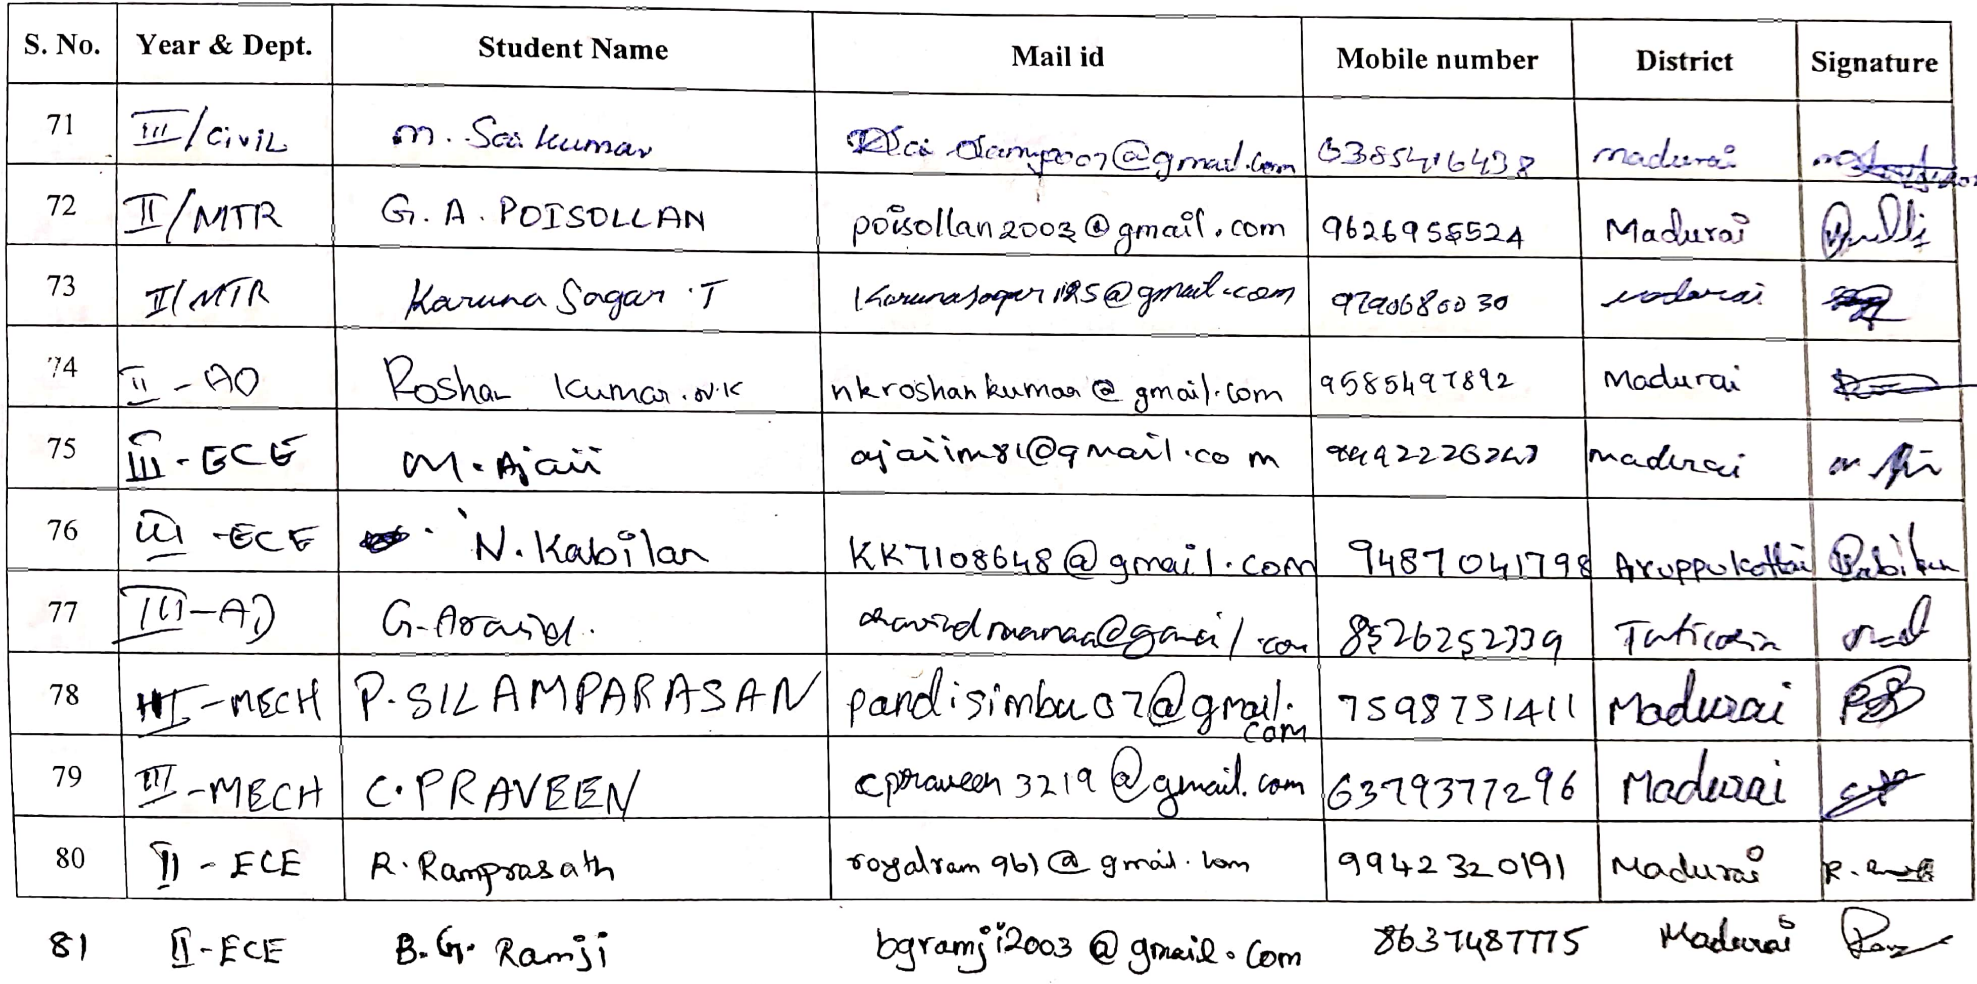 S. No. Year & Dept. Student Name Mail id Mobile number District Signature
71 III/CIVIL M. Sai kumar madurai
72 II/MTR G. A. POISOLLAN poisollan2003@gmail.com 9626955524 Madurai
73 II/MTR Karuna Sagar T Karunasagar1125@gmail.com
74 II - AO Roshan Kumar. N.K nkroshankumar@gmail.com 9585497892 Madurai
75 III - ECE M. Ajaii ajaiim81@gmail.com madurai
76 III - ECE N. Kabilan KK7108648@gmail.com 9487041798 Aruppukottai Kabilan
77 III - AO G. Aravind. 8526252339 Tuticorin
78 III - MECH P. SILAMPARASAN pandisimbu07@gmail.com 7598751411 Madurai
79 III - MECH C. PRAVEEN cpraveen3219@gmail.com 6379377296 Madurai
80 II - ECE R. Ramprasath royalram961@gmail.com 9942320191 Madurai
81 II - ECE B. G. Ramji bgramji2003@gmail.com 8637487775 Madurai